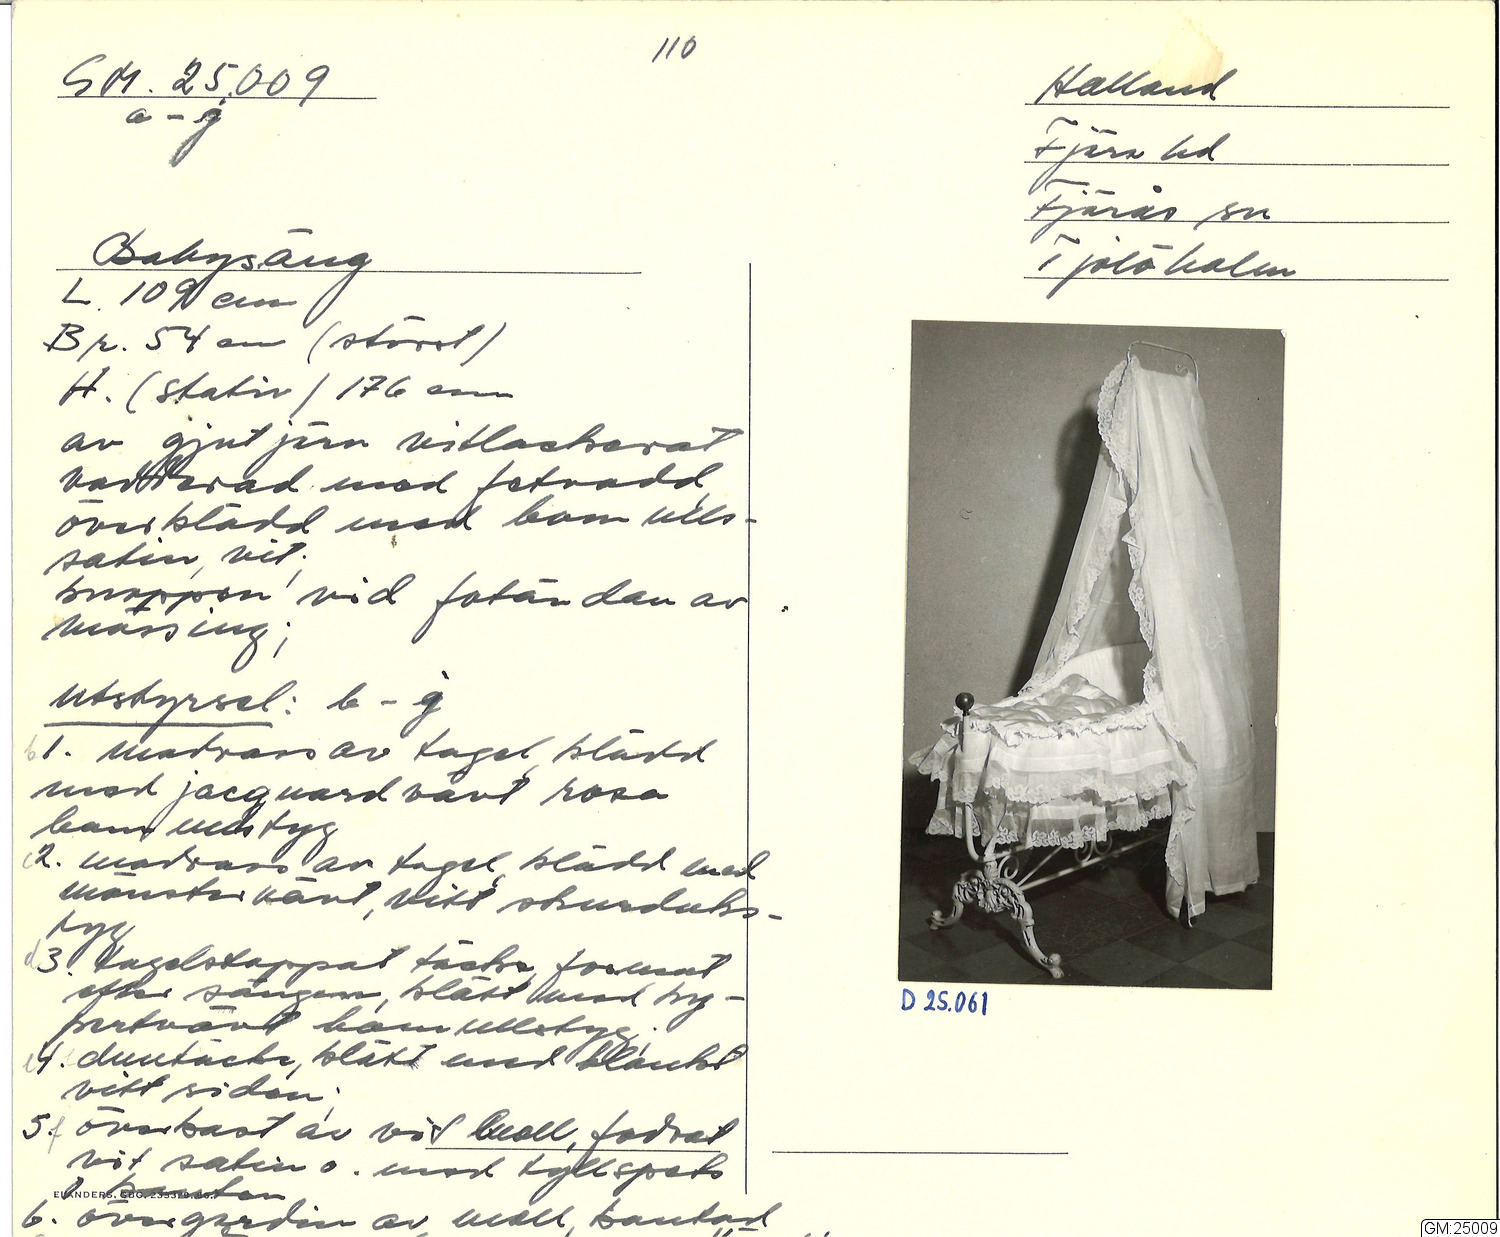 110
GM. 25.009
a - g
Halland
Fjäre hd
Fjärås sn
Tjolöholm
Babysäng
L. 109 cm
Br. 54 cm (störst)
H. (stativ) 176 cm
av gjutjärn vitlackerat
vadderad med fetvadd,
överklädd med bomulls-
satin, vit;
knoppen vid fotändan av
mässing;
Utstyrsel: b - g
b 1. madrass av tagel, klädd
med jacquardvävt rosa
bomullstyg
c 2. madrass av tagel, klädd med
mönstervävt, vitt
tyg
d 3. tagelstoppat täcke, format
efter sängen, klätt med ky-
pertvävt bomullstyg;
e 4. duntäcke, klätt med blankt
vitt siden;
5. f överkast av vit moll, fodrat
vit satin o. med tyllspets
i kanten
6. övergardin av moll, kantad
D 25.061
ELANDERS, GBG.
GM:25009